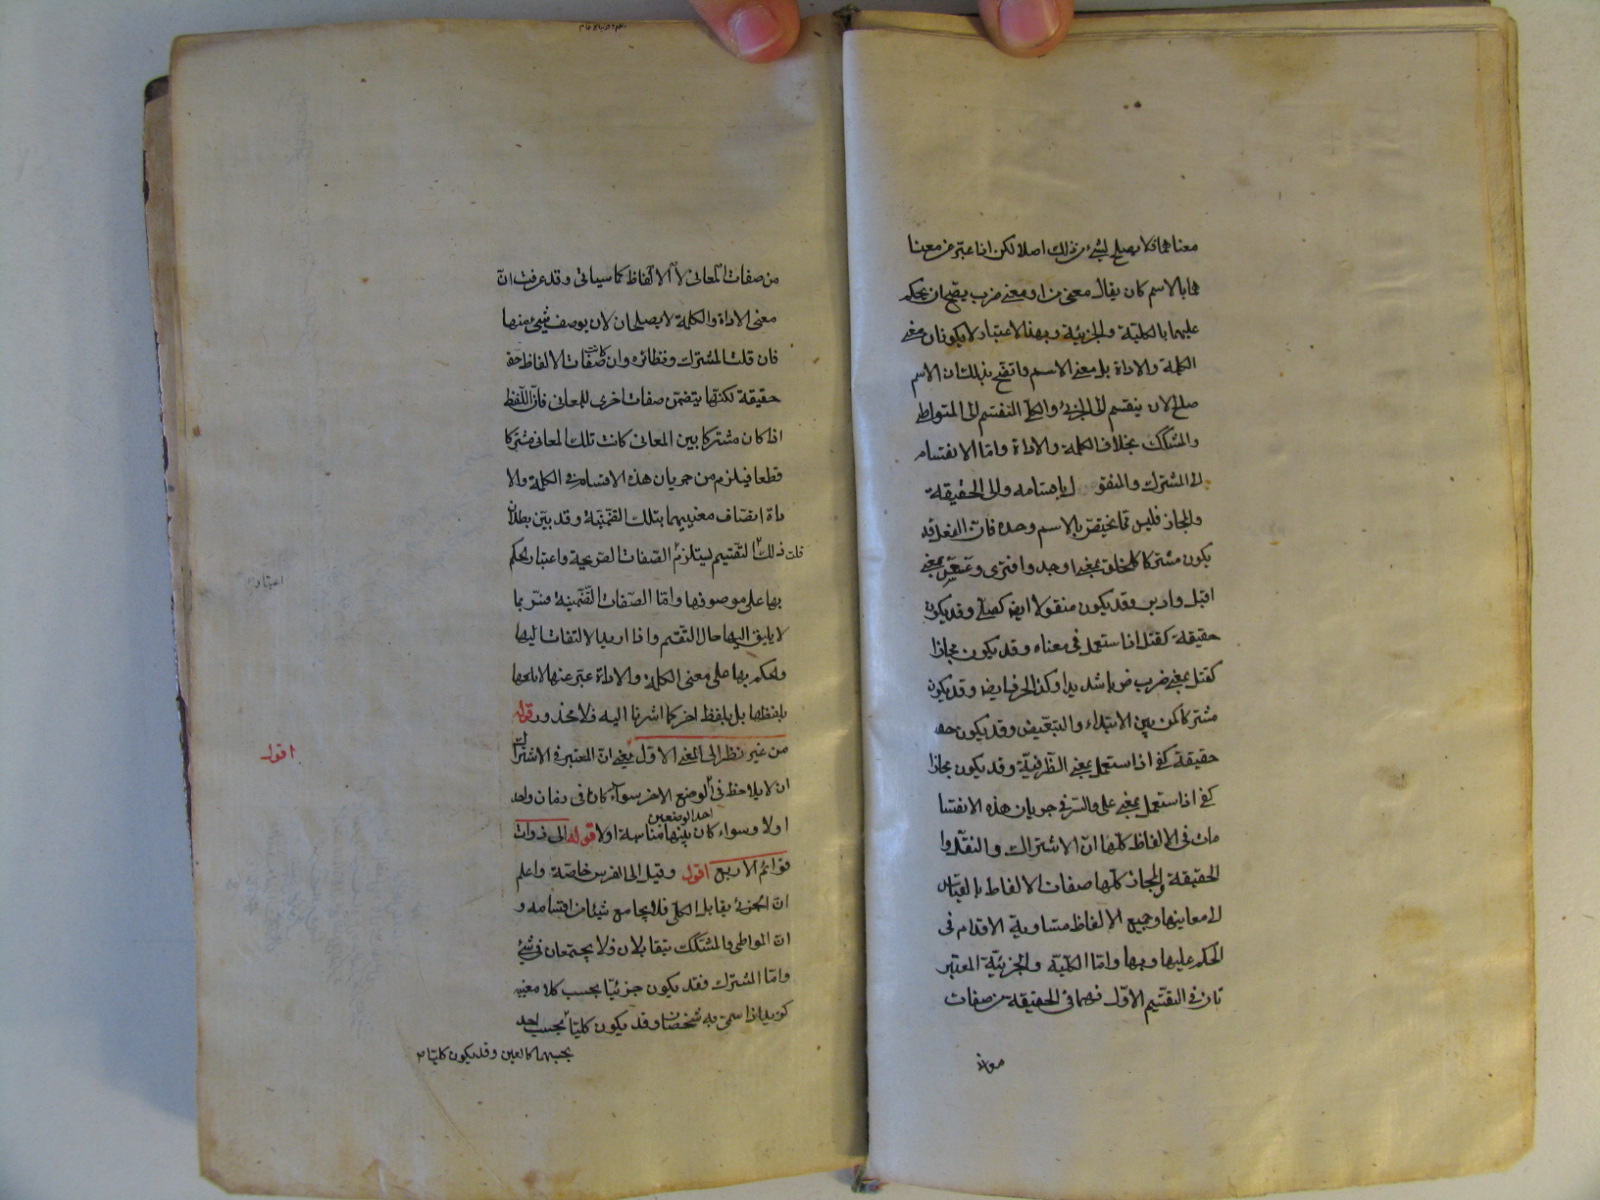 معناهما فلا يصلح لشئ من ذلك اصلا لكن اذا عبر عن معنا
هما بالاسم كان يقال معنى من او معنى ضرب يصح ان يحكم
عليهما بالكلية والجزئية وبهذا الاعتبار لا يكونان معنى
الكلمة والاداة بل معنى الاسم واتضح بذلك ان الاسم
صلح لان ينقسم الى الجزئى والكلى المنقسم الى المتواطى
والمشكك بخلاف الكلمة والاداة واما الانقسام
الى المشترك والمنقول باقسامه والى الحقيقة
والمجاز فليس مما يختص بالاسم وحده فان الفعل قد
يكون مشتركا كخلق بمعنى اوجد وافترى وعسعس بمعنى
اقبل وادبر وقد يكون منقولا ايضا كصلى وقد يكون
حقيقة كقتل اذا ستعمل فى معناه وقد يكون مجازا
كقتل بمعنى ضرب ضربا شديدا وكذا الحرف ايضا وقد يكون
مشتركا كمن بين الابتداء والتبعيض وقد يكون حقـ
حقيقة كفى اذا ستعمل بمعنى الظرفية وقد يكون مجازا
كفى اذا ستعمل بمعنى على والسر فى جريان هذه الانقسا
مات فى الالفاظ كلها ان الاشتراك والنقل وا
الحقيقة والمجاز كلها صفات الالفاظ بالقياس
الى معاينها وجميع الالفاظ متساوية الاقدام فى
الحكم عليها وبها واما الكلية والجزئية المعتبر
تان فى التقسيم الاول فهما فى الحقيقة من صفات
من صفات المعانى لا الالفاظ كما سياتى وقد عرفت ان
معنى الاداة والكلمة لا يصلحان لان يوصف بشئ منها
فان قلت المشترك ونظائره وان كانت صفات الالفاظ حقـ
حقيقة لكنها يتضمن صفات اخرى للمعانى فان اللفظ
اذا كان مشتركا بين المعانى كانت تلك المعانى مشتركا
قطعا فيلزم من جريان هذه الاقسام فى الكلمة والا
داة اتصاف معنييهما بتلك الضمنية وقد بين بطلان
ذلك قلت التقسيم يستلزم الصفات الصريحة واعتبار الحكم
بها على موصوفها واما الصفات الضمنية فربما
لا يلتفت اليها حال التقسيم واذا اريد الالتفات اليها
والحكم بها على معنى الكلمة والاداة عبر عنها لا
بلفظها بل بلفظ اخر كما اشرنا اليه فلا محذور قوله
من غير نظر الى المعنى الاول يعنى ان المعتبر فى الاشتراك
ان لا يلاحظ فى الوضع الاخر سواء كانا فى زمان واحد
احد الوضعين
اولا وسواء كان بينهما مناسبة اولا قوله الى ذوات
قوائم الاربع اقول وقيل الى الفرس خاصة واعلم
ان الجزئى يقابل الكلى فلا يجامع شيئا من اقسامه و
ان المواطى والمشكك متقابلان فلا يجتمعان فى شئ
واما المشترك فقد يكون جزئيا بحسب كلا معنييه
كزيد اذا سمى به شخصان وقد يكون كليا بحسب احد
بحسبهما كالعين وقد يكون كليا
اقول